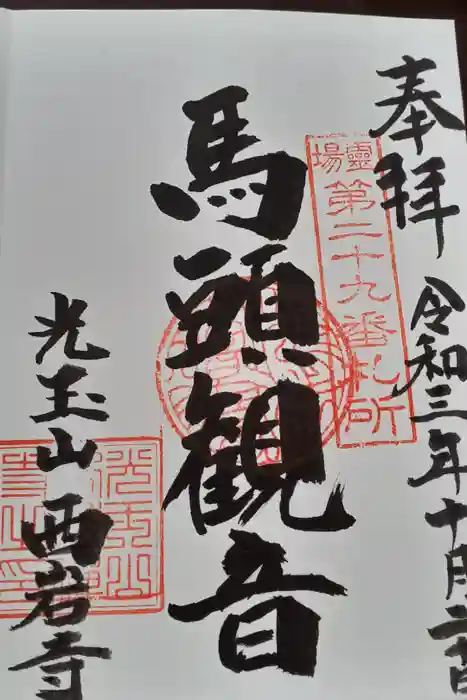 奉拝
令和三年十月
靈場
第二十九番札所
馬頭観音
光玉山 西岩寺